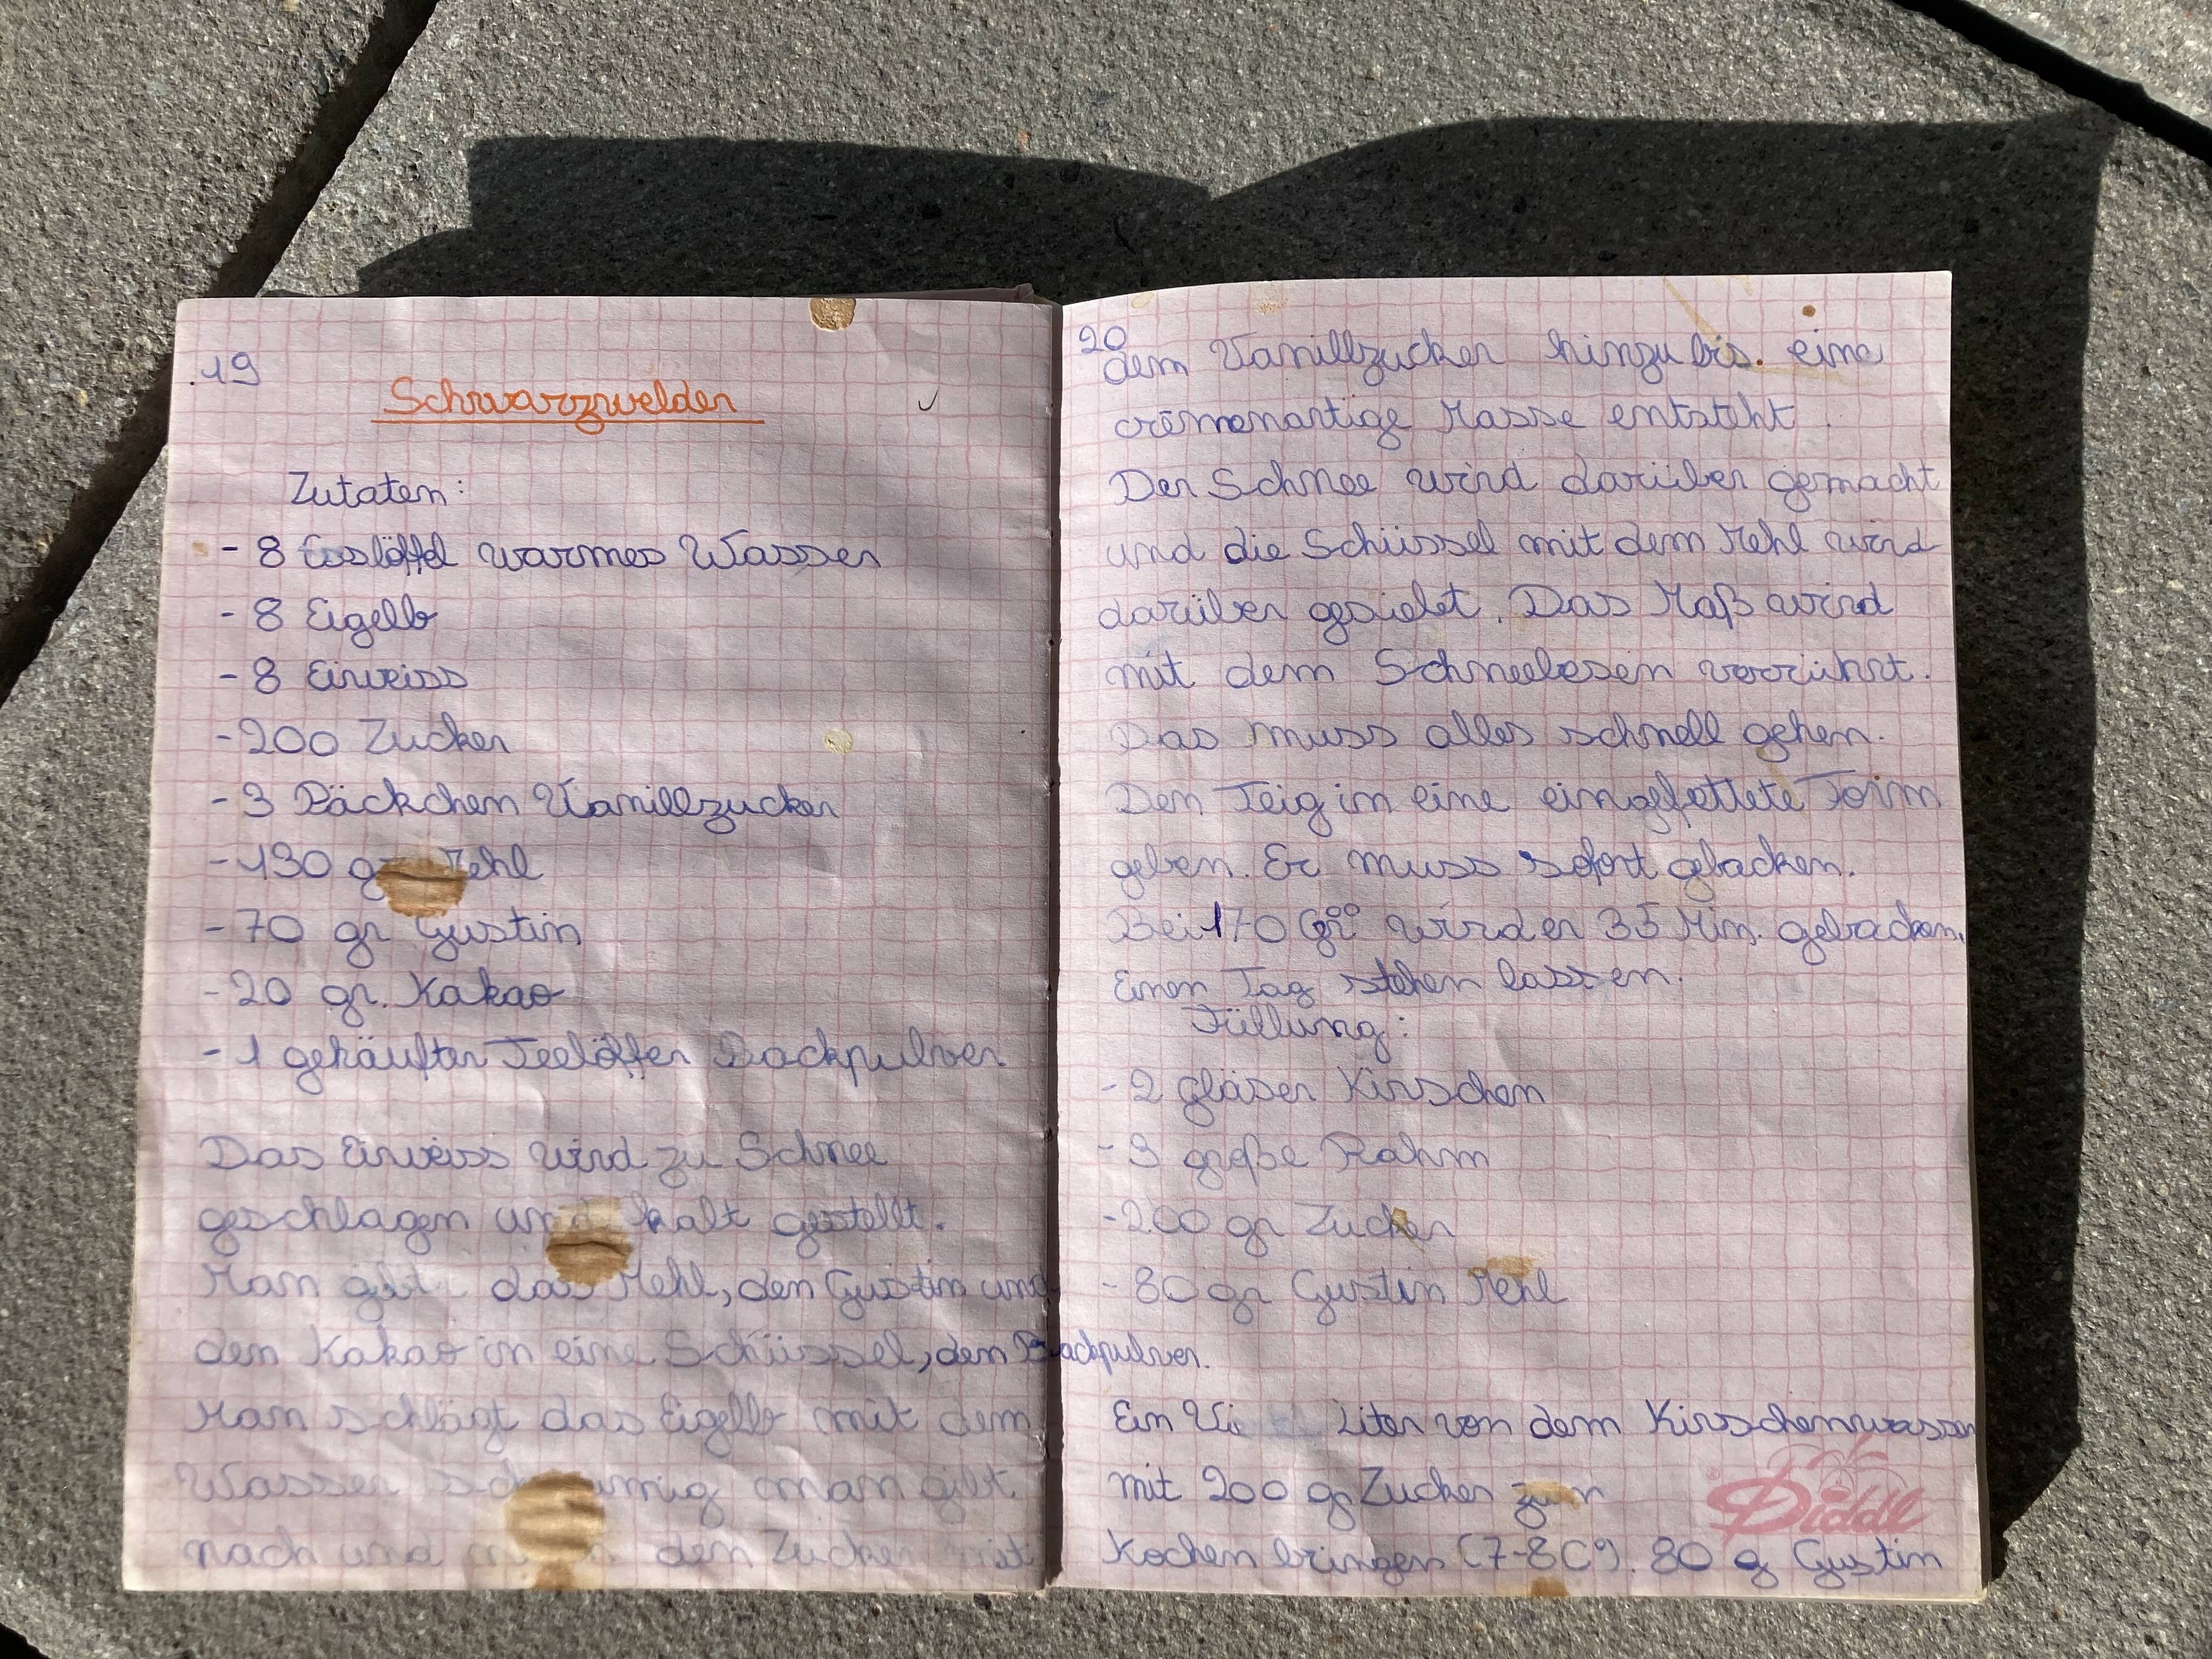 19
Schwarzwelder
Zutaten:
- 8 Esslöffel warmes Wasser
- 8 Eigelb
- 8 Eiweiss
- 200 Zucker
- 3 Päckchen Vanillzucker
- 130 gr Mehl
- 70 gr Gustin
- 20 gr. Kakao
- 1 gehäufter Teelöffer Backpulver
Das Eiweiss wird zu Schnee
geschlagen und kalt gestellt.
Man gibt das Mehl, den Gustin und
den Kakao in eine Schüssel, dem Backpulver.
Man schlägt das Eigelb mit dem
Wasser schaumig man gibt
nach und den Zucker mit
20
dem Vanillzucker hinzu bis eine
cremenartige Masse entsteht.
Der Schnee wird darüber gemacht
und die Schüssel mit dem Mehl wird
darüber gesiebt. Das Maß wird
mit dem Schneebesen verrührt.
Das muss alles schnell gehen.
Den Teig in eine eingefettete Form
geben. Er muss sofort gebacken.
Bei 170 Gr° wird er 35 Min. gebacken.
Einen Tag stehen lassen.
Füllung:
- 2 gläser Kirschen
- 3 große Rahm
- 200 gr Zucker
- 80 gr Gustin Mehl
Ein Liter von dem Kirschenwasser
mit 200 gr Zucker zum
Kochen bringen (7-8 C°). 80 g Gustin
Diddl